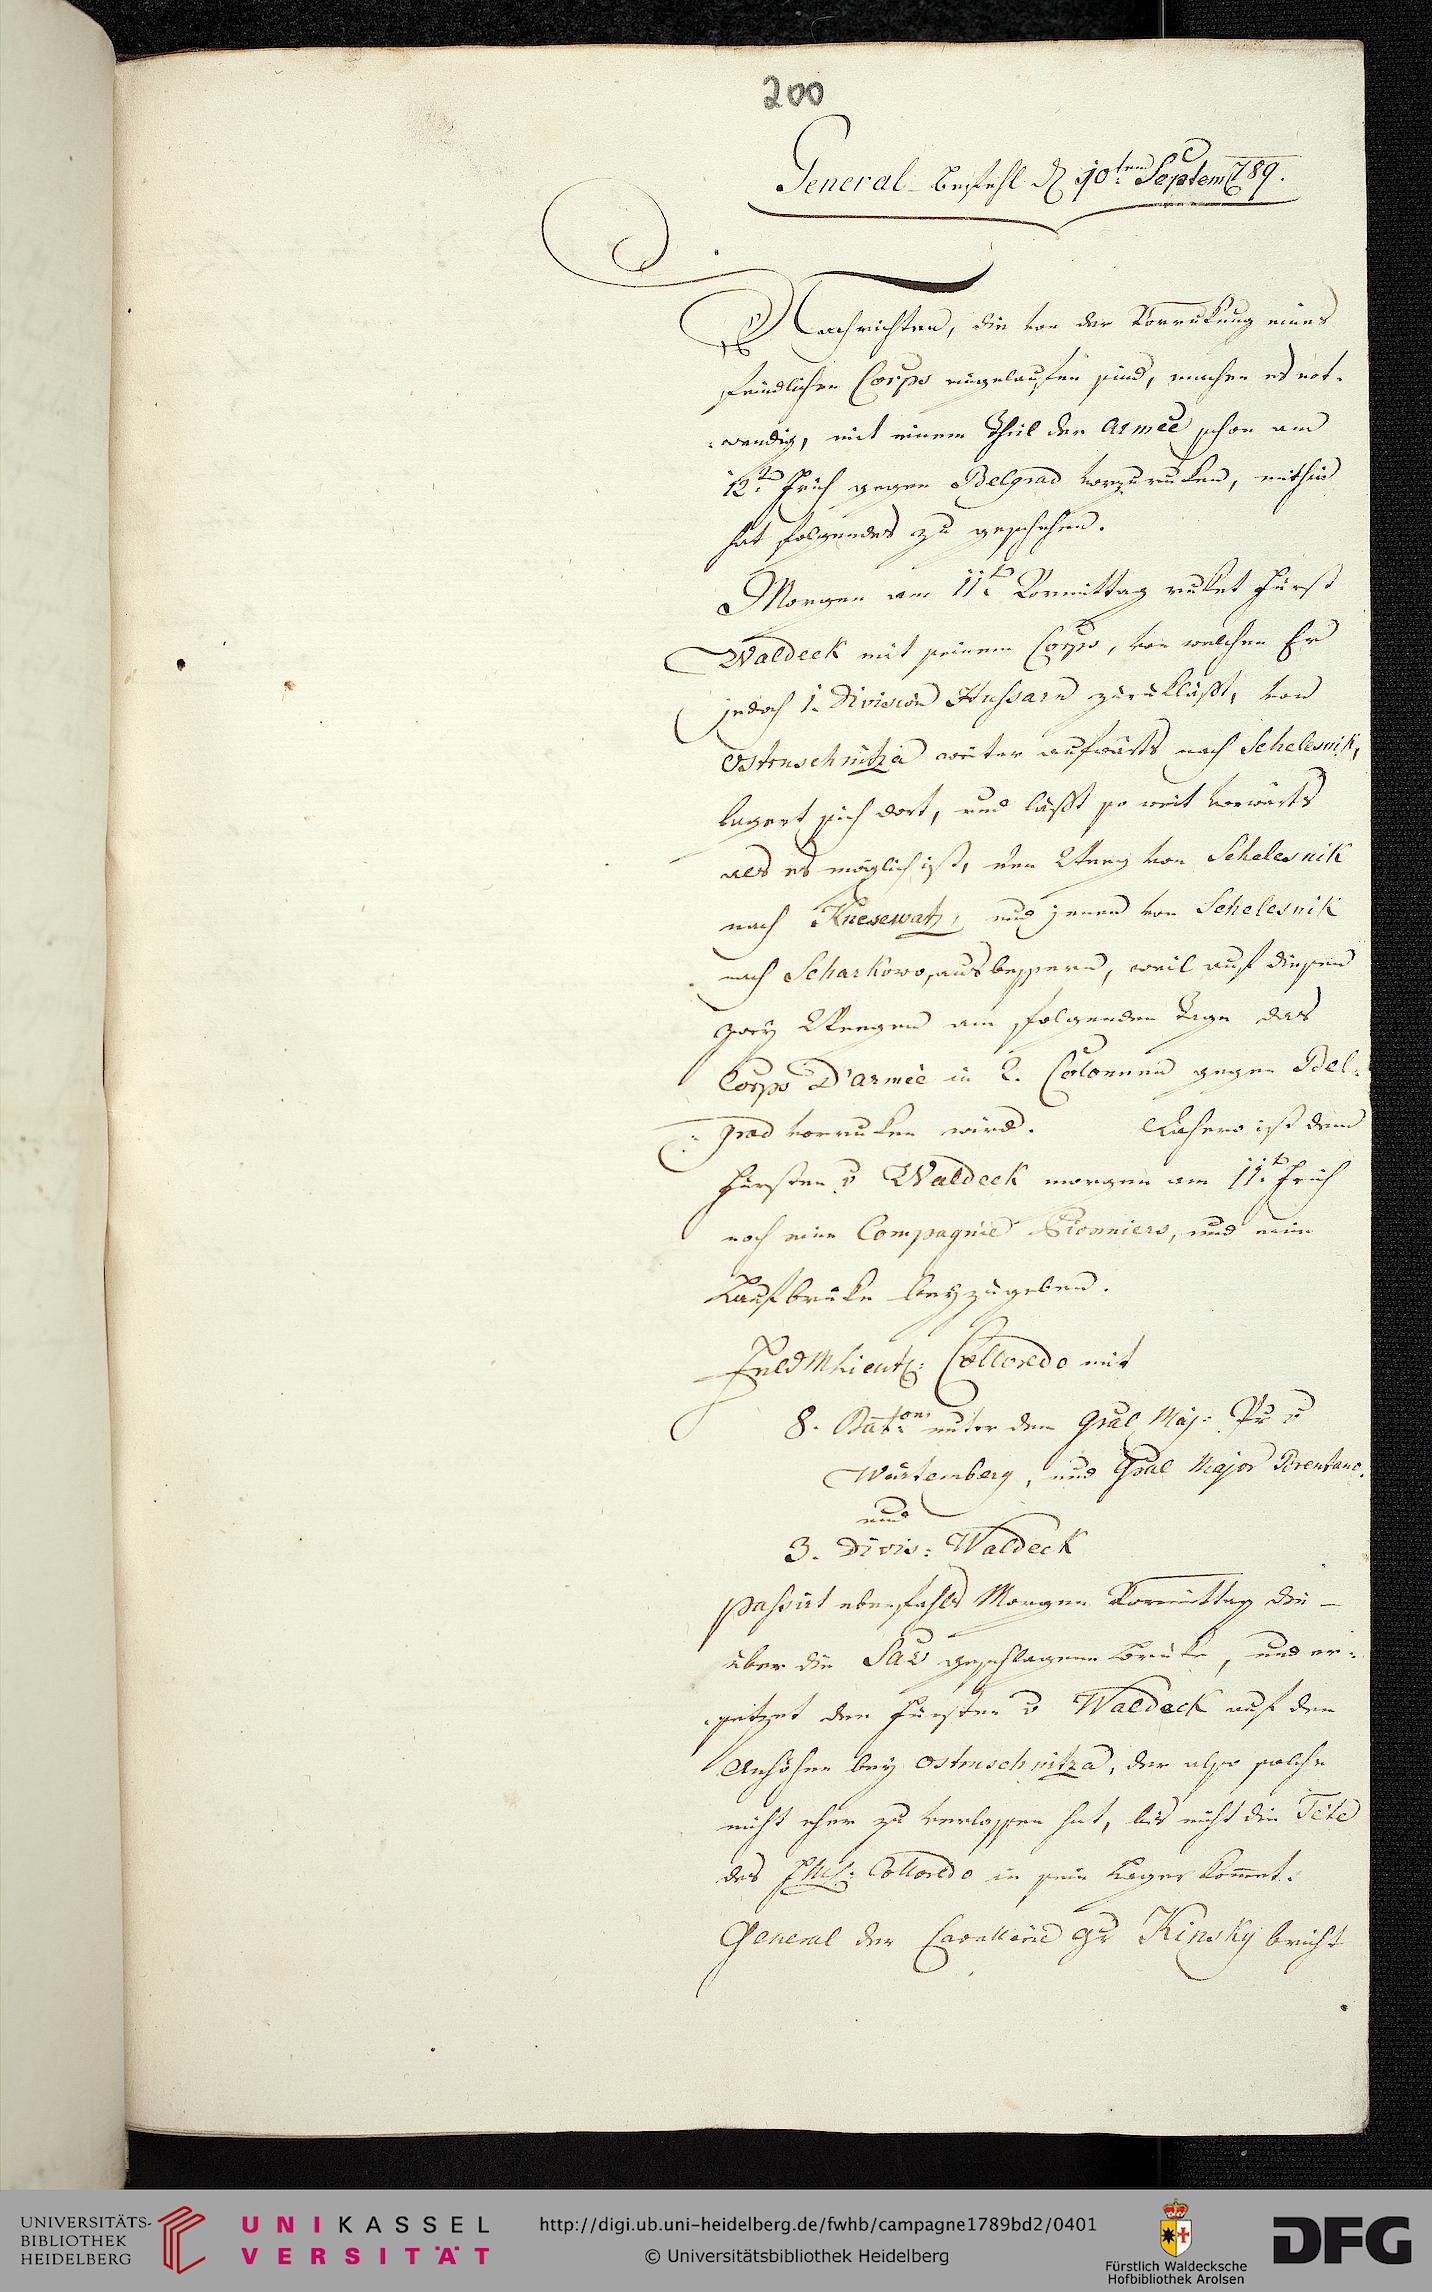 200
General-Befehl d 10ten Septem 789.
Nachrichten, die von der Vorrukung eines
feindlichen Corps eingelaufen sind, machen es not-
:wendig, mit einem Theil der Armée schon am
12t. Früh gegen Belgrad vorzuruken, mithin
hat folgendes zu geschehen.
Morgen am 11t. Vormittag ruket Fürst
Waldeck mit seinem Corps, von welchen Er
jedoch 1. Division Hussarn zurükläßt, von
Ostruschnitza weiter aufwärts nach Schelesnik,
lagert sich dort, und läßt so weit vorwärts
als es möglich ist, den Weeg von Schelesnik
nach Knesewatz, und jenen von Schelesnik
nach Scharkowo, ausbessern, weil auf diesen
zwey Weegen am folgenden Tage das
Corps D'armée in 2. Colonnen gegen Bel-
:grad vorruken wird. Dahero ist dem
Fürsten v Waldeck morgen am 11t. Früh
noch eine Compagnie Pionniers, und eine
Laufbrüke beyzugeben.
FeldMLieut: Colloredo mit
8. Batons. unter dem Gral Maj: Pr v
Würtemberg, und Gral Major Brentano.
und
3. Divis: Waldeck
Passirt ebenfahls Morgen Vormittag die –
über die Sau geschlagene Brüke, und er-
:setzet den Fürsten v Waldeck auf den
Anhöhen bey Ostruschnitza, der also solche
nicht eher zu verlassen hat, bis nicht die Tête
des FML: Colloredo in sein Lager kommet.
General der Cavallerie Gr Kinsky bricht
UNIVERSITÄTS-
BIBLIOTHEK
HEIDELBERG
UNIKASSEL
VERSITÄT
http://digi.ub.uni-heidelberg.de/fwhb/campagne1789bd2/0401
© Universitätsbibliothek Heidelberg
Fürstlich Waldecksche
Hofbibliothek Arolsen
DFG